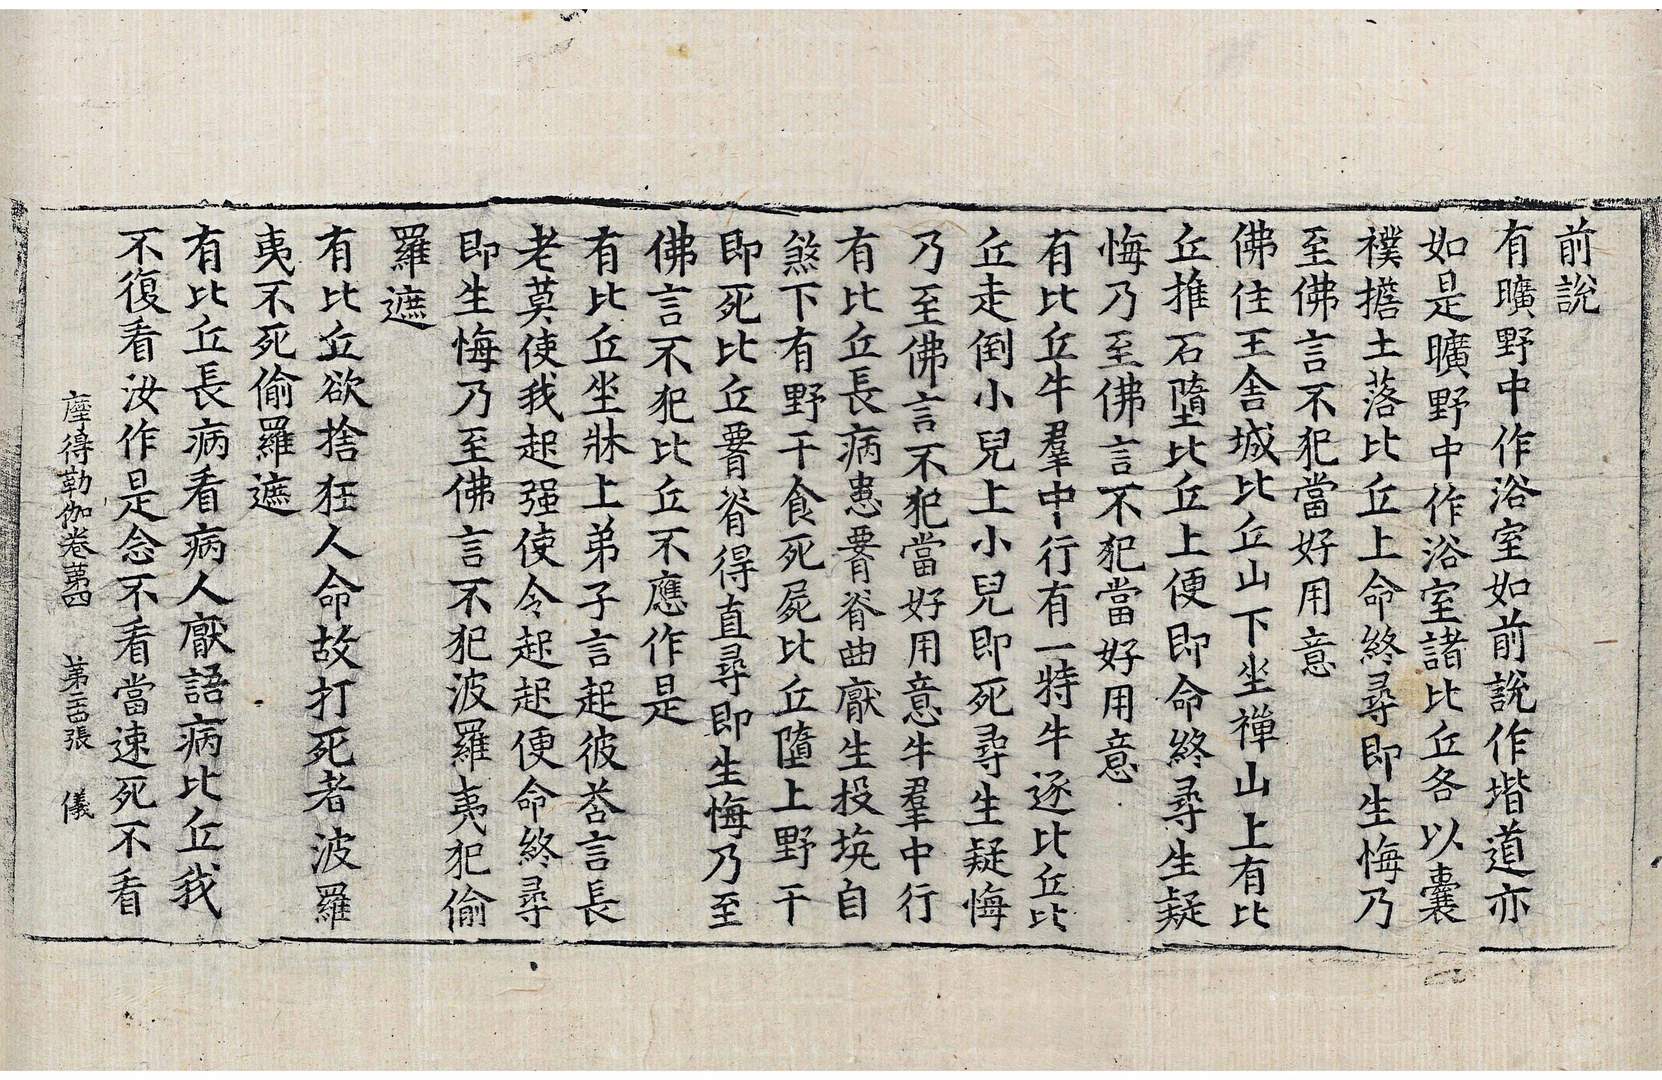 前說
有曠野中作浴室如前說作堦道亦
如是曠野中作浴室諸比丘各以囊
襆擔土落比丘上命終尋即生悔乃
至佛言不犯當好用意
佛住王舍城比丘山下坐禪山上有比
丘推石墮比丘上便即命終尋生疑
悔乃至佛言不犯當好用意
有比丘牛羣中行有一特牛逐比丘比
丘走倒小兒上小兒即死尋生疑悔
乃至佛言不犯當好用意牛羣中行
有比丘長病患𦝫脊曲厭生投坑自
煞下有野干食死屍比丘墮上野干
即死比丘𦝫脊得直尋即生悔乃至
佛言不犯比丘不應作是
有比丘坐牀上弟子言起彼荅言長
老莫使我起强使令起起便命終尋
即生悔乃至佛言不犯波羅夷犯偷
羅遮
有比丘欲捨狂人命故打死者波羅
夷不死偷羅遮
有比丘長病看病人厭語病比丘我
不復看汝作是念不看當速死不看
摩得勒伽卷第四 第二十四張 儀